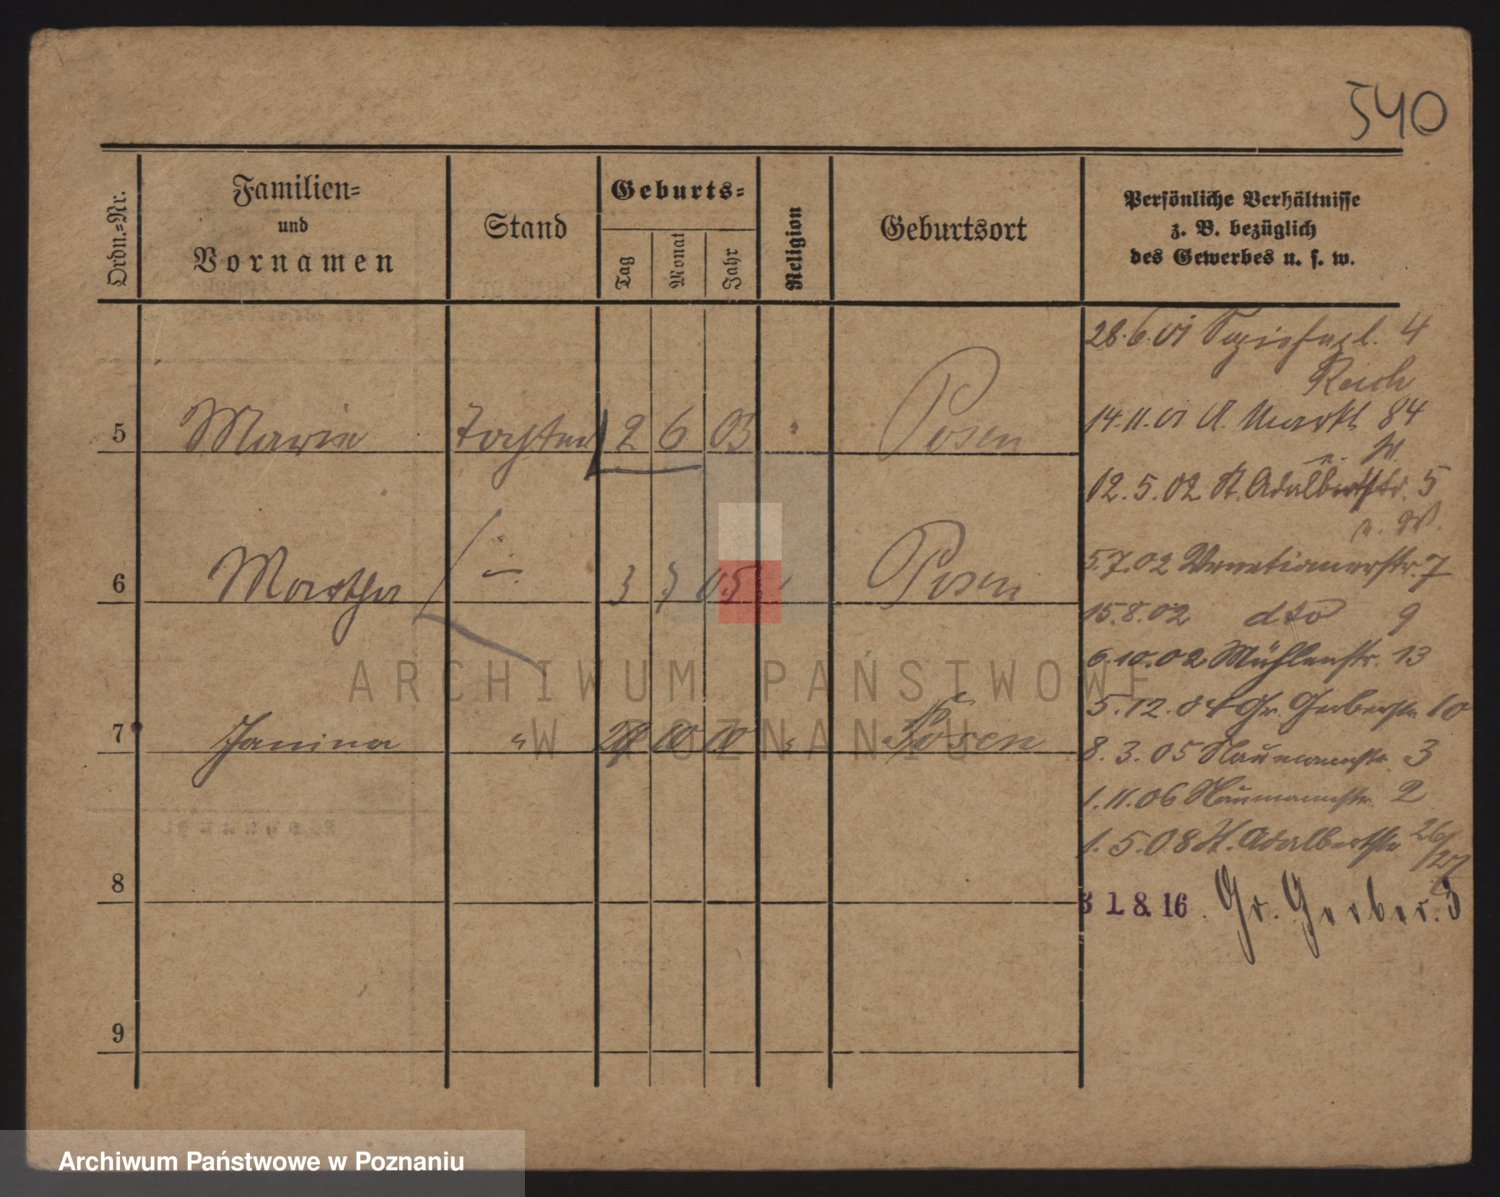 540
Ordn.-Nr.
Familien-
und
Vornamen
Stand
Geburts-
Tag
Monat
Jahr
Religion
Geburtsort
Persönliche Verhältnisse
z. B. bezüglich
des Gewerbes u. s. w.
28.6.01 4
14.11.01 A. Markt 84
5 Marie Tochter 2 6 03 " Posen
12.5.02 St. Adalbertstr. 5
5.7.02 Venetianerstr. 7
6 Martha 3 7 05 Posen
15.8.02 dto 9
6.10.02 Mühlenstr. 13
5.12.04 Gr. Gerberstr 10
7 Janina " 10 10 " Posen
8.3.05 Naumannstr. 3
1.11.06 Naumannstr. 2
1.5.08 St. Adalbertstr 26/27
8
31.8.16 Gr. Gerber. 3
9
ARCHIWUM PAŃSTWOWE
W POZNANIU
Archiwum Państwowe w Poznaniu